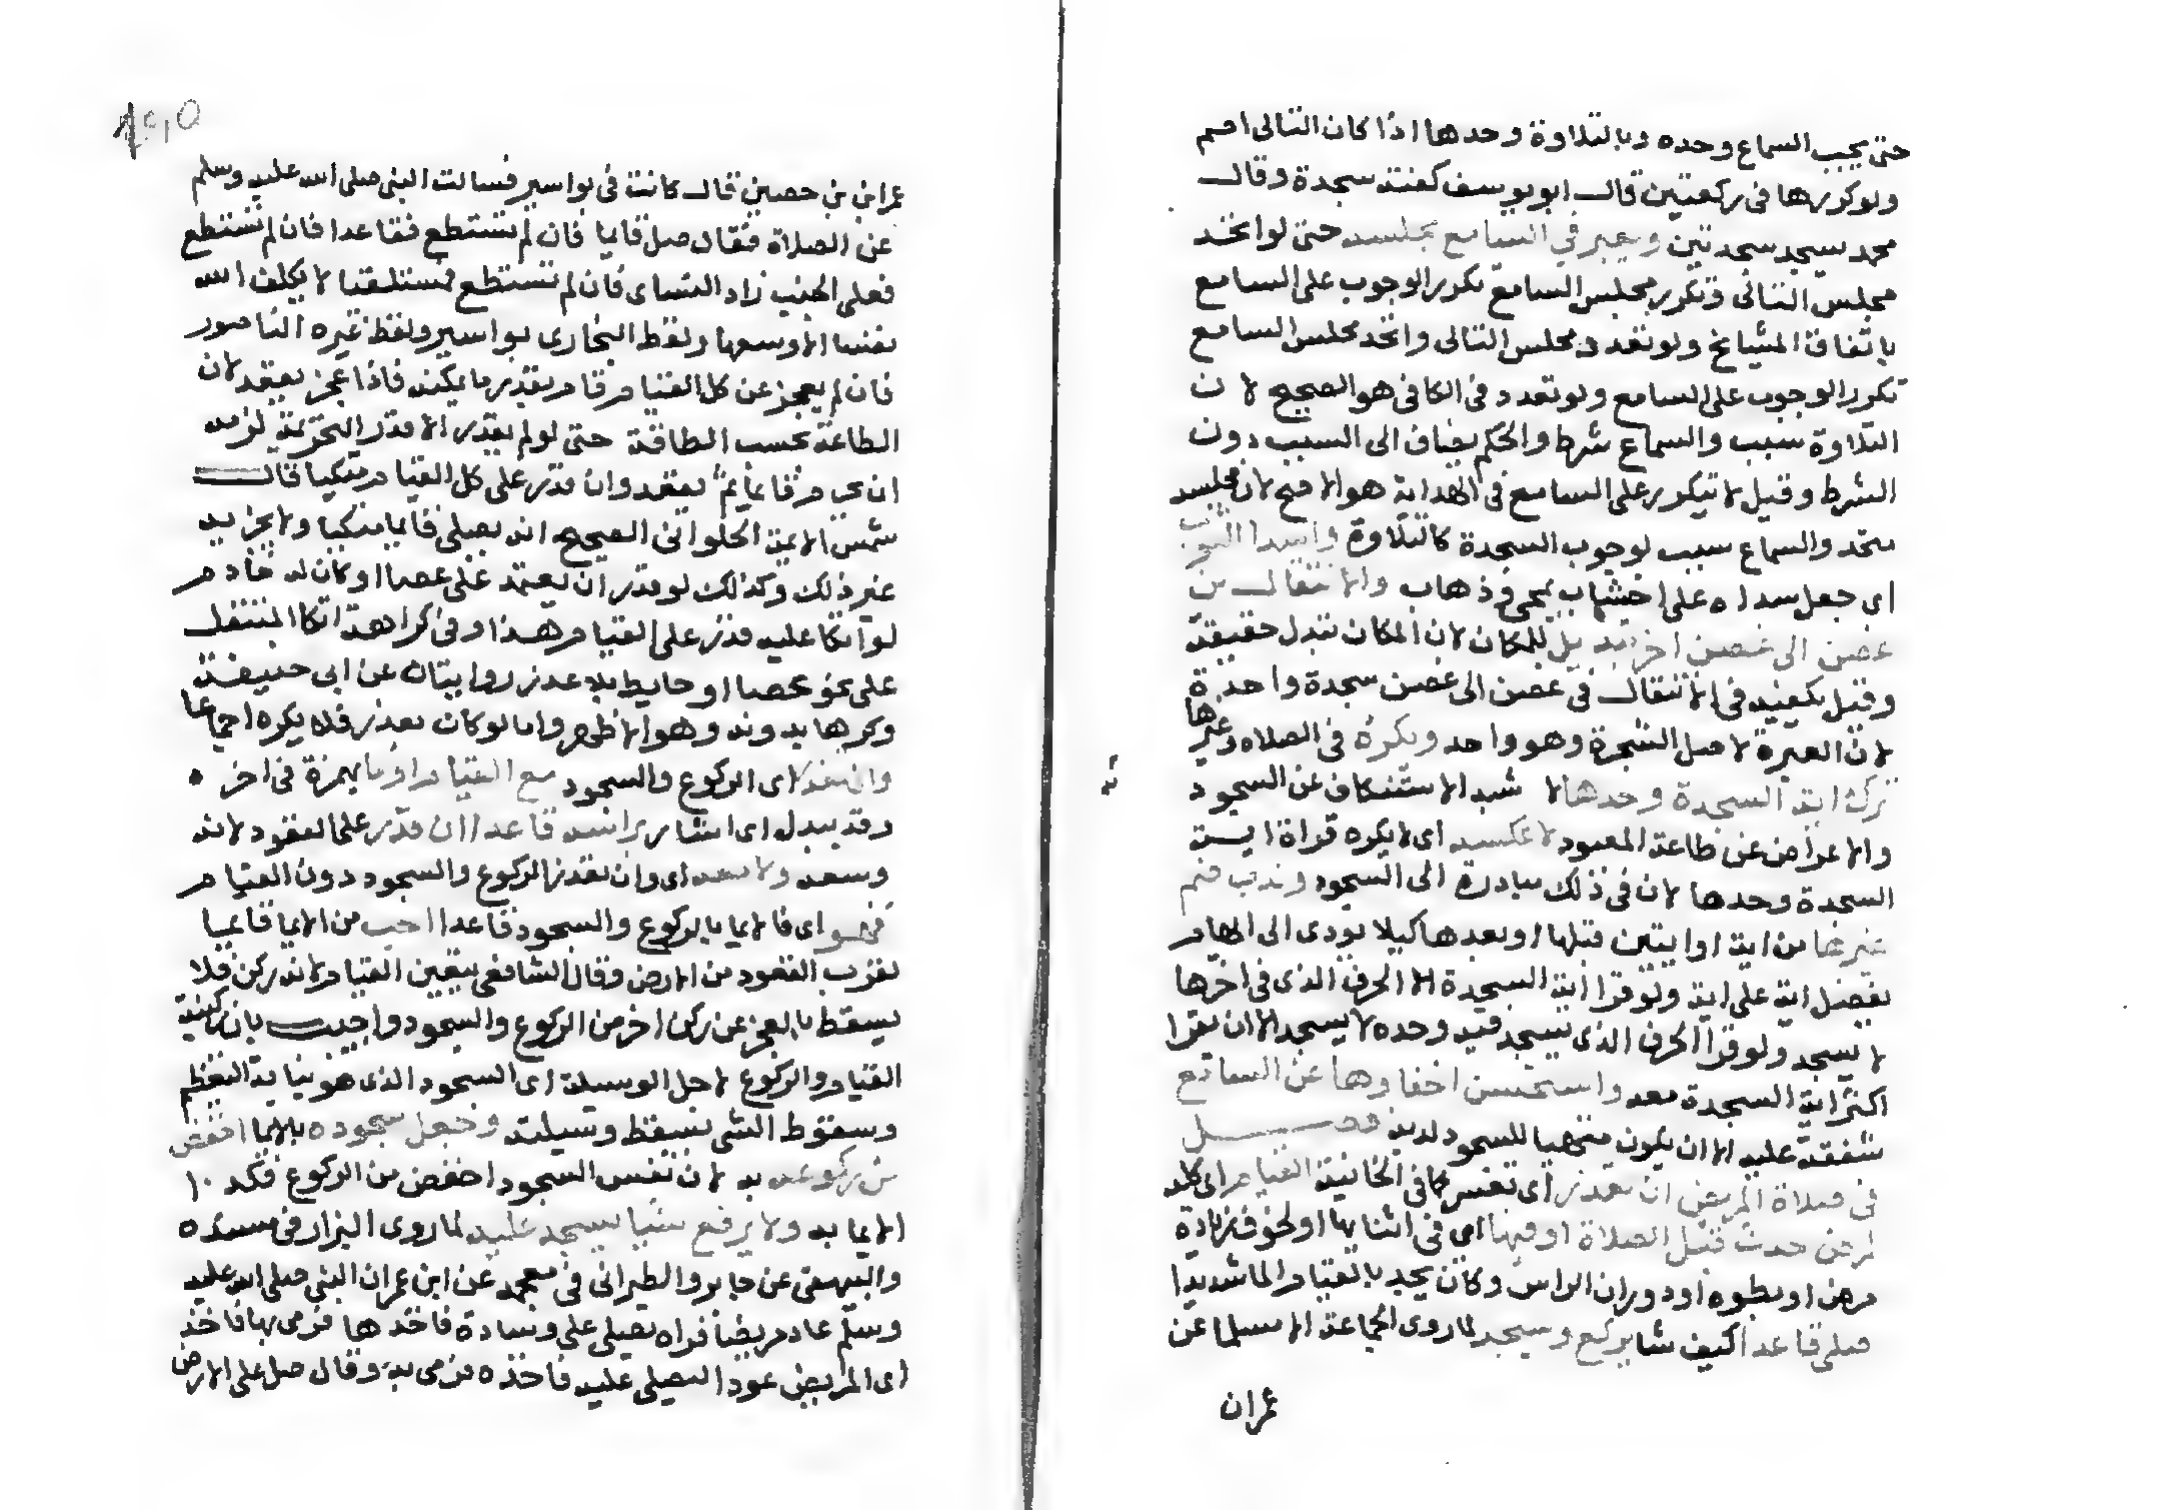 حتى يجب السماع وحده وبالتلاوة وحدها اذا كان التالى اصم
ولو كررها فى ركعتين قال ابو يوسف كفته سجدة وقال
محمد سجد سجدتين ويعتبر في السامع مجلسه حتى لو اتحد
مجلس التالى وتكرر مجلس السامع تكرر الوجوب على السامع
باتفاق المشايخ ولو تعدد مجلس التالى واتحد مجلس السامع
تكرر الوجوب على السامع ولو تعدد فى الكافى هو الصحيح لان
التلاوة سبب والسماع شرط والحكم يضاف الى السبب دون
الشرط وقيل لا تيكرر على السامع فى الهداية هو الاصح لان مجلسه
متحد والسماع سبب لوجوب السجدة كالتلاوة واسدا الثوب
اى جعل سداه على اخشاب يجى وذهاب والانتقال من
غصن الى غصن اخر تبديل للمكان لان المكان تبدل حقيقة
وقيل يكفيه فى الانتقال فى غصن الى غصن سجدة واحدة
لان العبرة لاصل الشجرة وهو واحد ويكره فى الصلاه وغيرها
ترك اية السجدة وحدها لا شبه الاستنكاف عن السجود
والاعراض عن طاعة المعبود لا عكسه اى لا يكره قراة اية
السجدة وحدها لان فى ذلك مبادرة الى السجود وندب ضم
غيرها من اية او ايتين قبلها او بعدها كيلا يودى الى ايهام
تفضل اية على اية ولو قرا اية السجدة الا الحرف الذى فى اخرها
لا يسجد ولو قرا الحرف الذى يسجد فيه وحده لا يسجد الا ان يقرا
اكثر اية السجدة معه واستحسن اخفاوها عن السامع
شفقة عليه الا ان يكون متهيا للسجود لديه فصل
فى صلاة المريض ان تعذر اى تعسر كما فى الخانية القيام اى كله
لمرض حدث قبل الصلاة او فيها اى فى اثنايها او لخوف زيادة
مرض او بطوه او دوران الراس وكان يجد بالقيام الما شديدا
صلى قاعدا كيف شا يركع ويسجد لما روى الجماعة الا مسلما عن
عمران
عمران بن حصين قال كانت فى بواسير فسالت النبى صلى الله عليه وسلم
عن الصلاة فقال صل قايما فان لم تستطع فقاعدا فان لم تستطع
فعلى الجنب زاد النساى فان لم تستطع فمستلقيا لا يكلف الله
نفسا الا وسعها ولفظ البخارى بواسير ولفظ غيره الناصور
فان لم يعجز عن كل القيام قام بقدر ما يمكنه فاذا عجز يقعد لان
الطاعة بحسب الطاقة حتى لو لم يقدر الا قدر التحريمة لزمه
ان يحرم قايما ثم يقعد وان قدر على كل القيام متكيا قال
شمس الايمة الحلوانى الصحيح انه يصلى قايما متكيا ولا يجزيه
غير ذلك وكذلك لو قدر ان يعتمد على عصا او كان له خادم
لو اتكا عليه قدر على القيام هذا وفى كراهة اتكا المتنفل
على نحو عصا او حايط بلا عذر روايتان عن ابى حنيفة
وكرها بدونه وهو الاظهر واما لو كان بعذر فلا يكره اجماعا
وان تعذر اى الركوع والسجود مع القيام اوما بهمزة فى اخره
وقد يبدل اى اشار براسه قاعدا ان قدر على القعود لانه
وسعه ولا بعد اى وان تعذر الركوع والسجود دون القيام
فهو اى فالايما بالركوع والسجود قاعدا احب من الايما قايما
لقرب القعود من الارض وقال الشافعى يتعين القيام لانه ركن فلا
يسقط بالعجز عن ركن اخر من الركوع والسجود واجيب بان ركنية
القيام والركوع لاجل الوسيلة اى السجود الذى هو نهاية التعظيم
وسقوط الشى تسقط وسيلته وجعل سجوده بالايما اخفض
من ركوعه به لان نفس السجود اخفض من الركوع فكذا
الايما به ولا يرفع شيا يسجد عليه لما روى البزار فى مسنده
والبيهقى عن جابر والطبرانى فى معجمه عن ابن عمر ان النبى صلى الله عليه
وسلم عاد مريضا فراه يصلى على وسادة فاخذها فرمى بها فاخذ
اى المريض عودا ليصلى عليه فاخذه فرمى به وقال صل على الارض